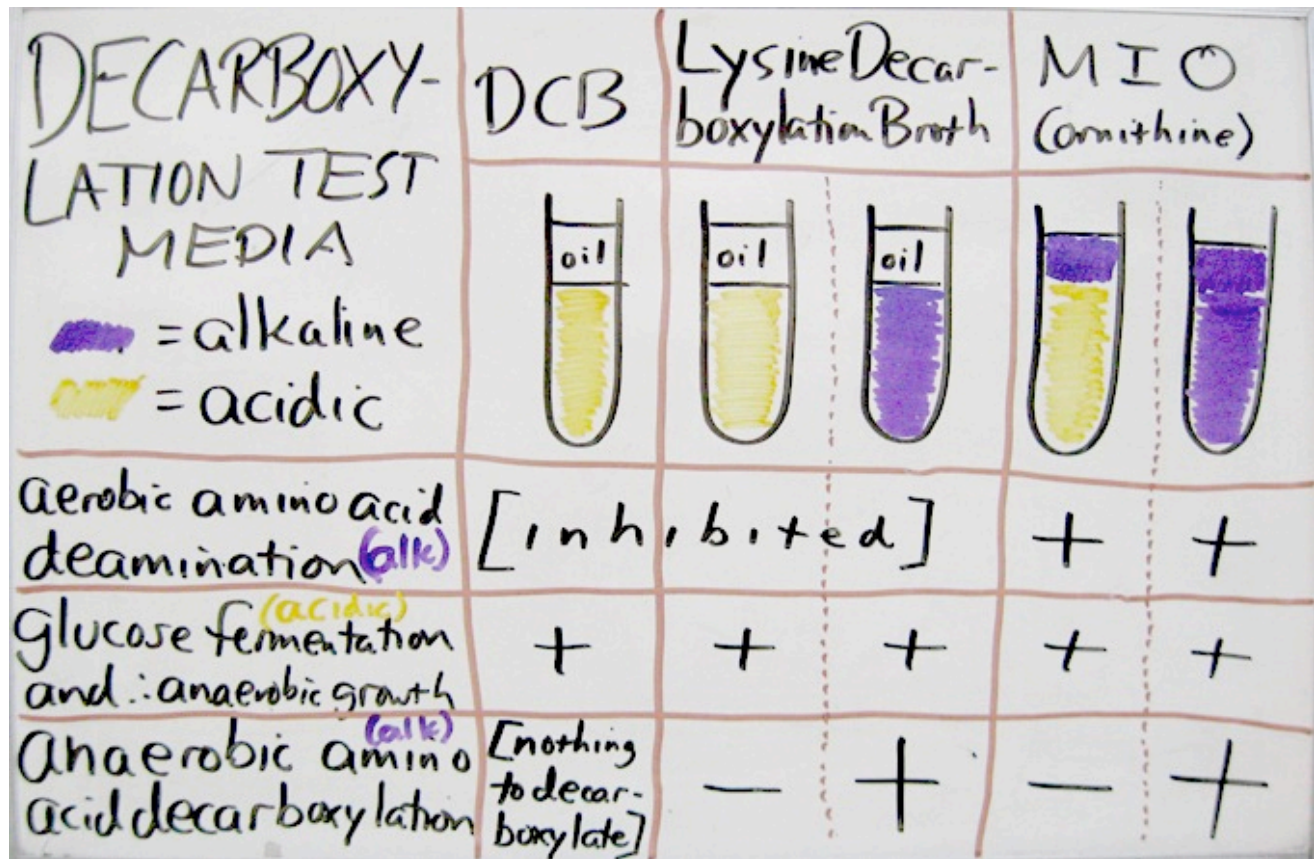 DECARBOXY-
LATION TEST
MEDIA
= alkaline
= acidic
DCB
Lysine Decar-
boxylation Broth
MIO
(ornithine)
oil
oil
oil
aerobic amino acid
deamination (alk)
[inhibited]
+ +
(acidic)
glucose fermentation
and ∴ anaerobic growth
+ + + + +
(alk)
anaerobic amino
acid decarboxylation
[nothing
to decar-
boxylate]
— + — +